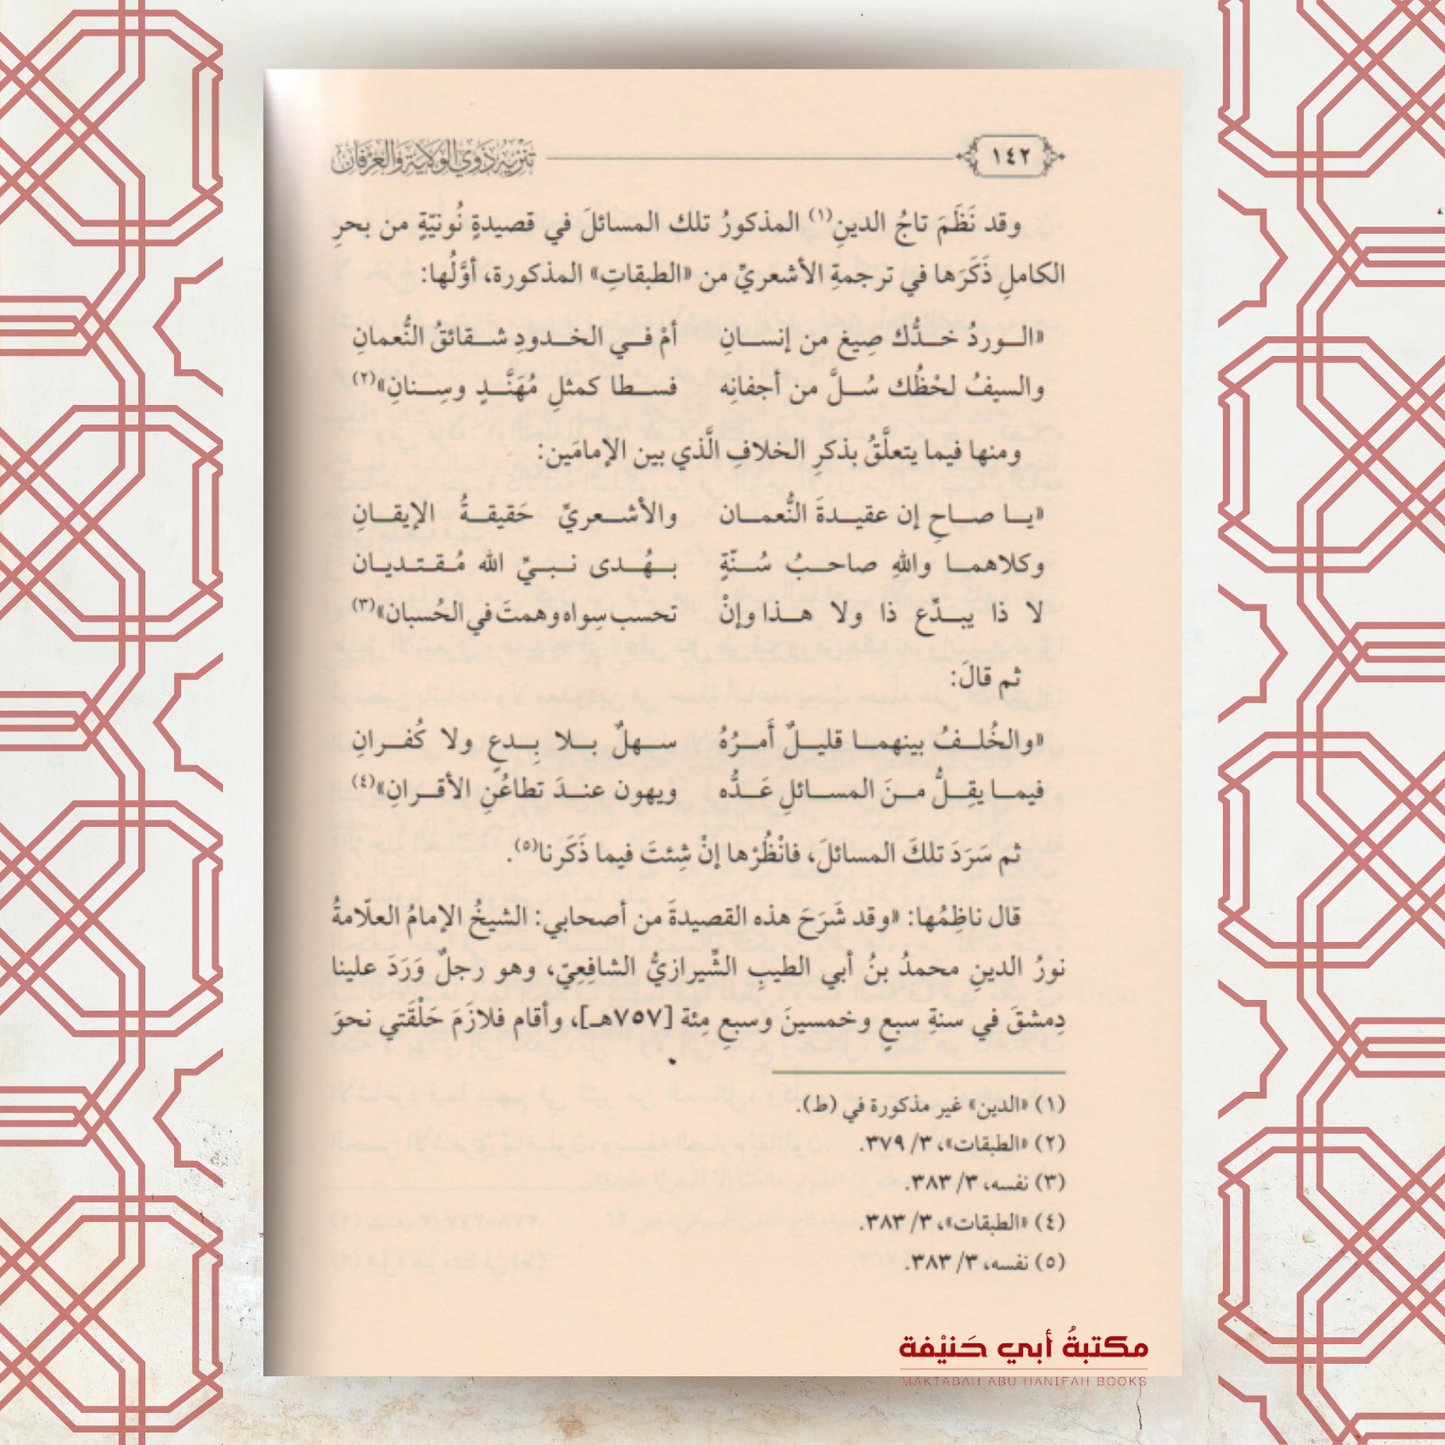 ١٤٢
تنزيه ذوي الولاية والعرفان
وقد نَظَمَ تاجُ الدينِ(١) المذكورُ تلك المسائلَ في قصيدةٍ نُونيّةٍ من بحرِ
الكاملِ ذَكَرَها في ترجمةِ الأشعريِّ من «الطبقاتِ» المذكورة، أوَّلُها:
«الــوردُ خــدُّك صِيغ من إنســانِ أمْ فــي الخــدودِ شــقائقُ النُّعمانِ
والسيفُ لحْظُك سُــلَّ من أجفانِه فســطا كمثلِ مُهَنَّــدٍ وسِــنانِ»(٢)
ومنها فيما يتعلَّقُ بذكرِ الخلافِ الَّذي بين الإمامَين:
«يــا صــاحِ إن عقيــدةَ النُّعمــان والأشــعريِّ حَقيقــةُ الإيقــانِ
وكلاهمــا واللهِ صاحــبُ سُــنّةٍ بــهُــدى نــبــيِّ الله مُــقــتــديــان
لا ذا يبــدِّع ذا ولا هــذا وإنْ تحسب سِواه وهمتَ في الحُسبان»(٣)
ثم قالَ:
«والخُلــفُ بينهمــا قليــلٌ أَمــرُهُ ســهلٌ بــلا بِــدعٍ ولا كُفــرانِ
فيمــا يقِــلُّ مــنَ المســائلِ عَــدُّه ويهون عنــدَ تطاعُنِ الأقــرانِ»(٤)
ثم سَرَدَ تلكَ المسائلَ، فانْظُرْها إنْ شِئتَ فيما ذَكَرنا(٥).
قال ناظِمُها: «وقد شَرَحَ هذه القصيدةَ من أصحابي: الشيخُ الإمامُ العلّامةُ
نورُ الدينِ محمدُ بنُ أبي الطيبِ الشِّيرازيُّ الشافِعِيّ، وهو رجلٌ وَرَدَ علينا
دِمشقَ في سنةِ سبعٍ وخمسينَ وسبعِ مِئة [٧٥٧هـ]، وأقام فلازَمَ حَلْقَتي نحوَ
(١) «الدين» غير مذكورة في (ط).
(٢) «الطبقات»، ٣/ ٣٧٩.
(٣) نفسه، ٣/ ٣٨٣.
(٤) «الطبقات»، ٣/ ٣٨٣.
(٥) نفسه، ٣/ ٣٨٣.
مكتبةُ أبي حَنيْفة
MAKTABAH ABU HANIFAH BOOKS